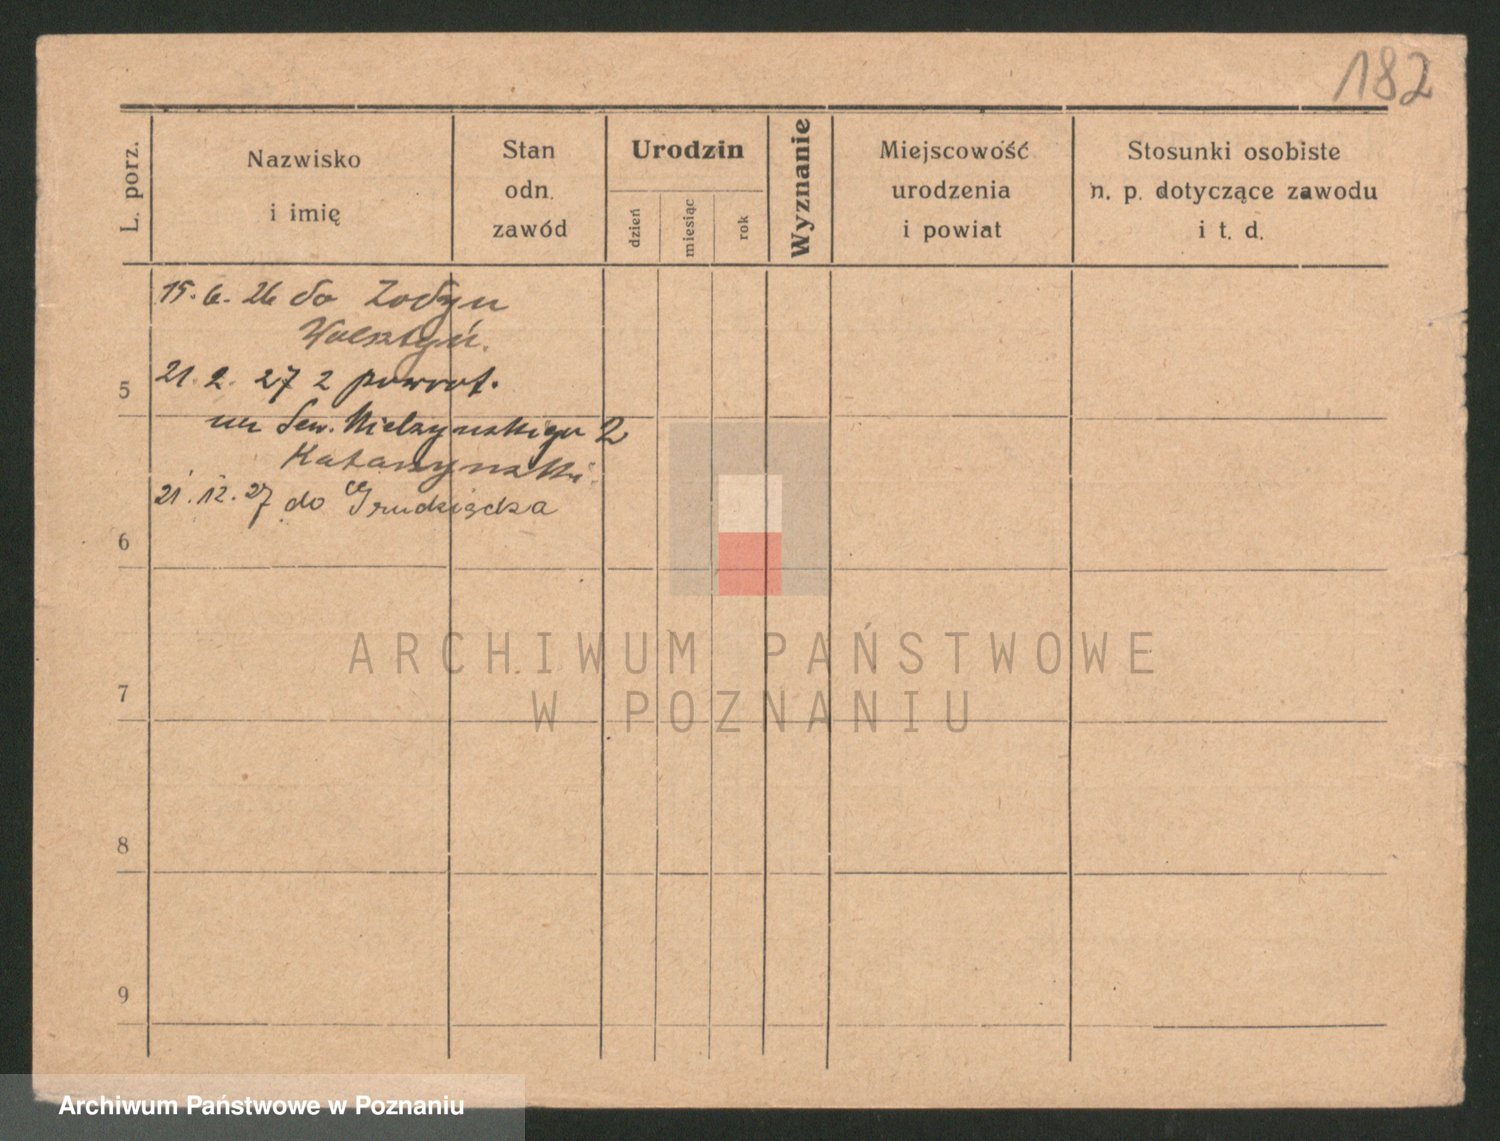 182
L. porz.
Nazwisko
i imię
Stan
odn.
zawód
Urodzin
dzień
miesiąc
rok
Wyznanie
Miejscowość
urodzenia
i powiat
Stosunki osobiste
n. p. dotyczące zawodu
i t. d.
15. 6. 26 do Zodyn
Wolsztyń.
21. 2. 27 z powrot.
Sew. Mielzynskiego 2
21. 12. 27 do Grudziądza
5
6
7
8
9
ARCHIWUM PAŃSTWOWE
W POZNANIU
Archiwum Państwowe w Poznaniu